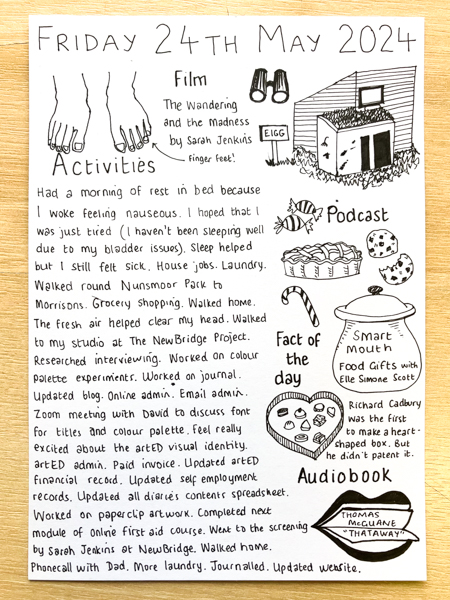 FRIDAY 24TH MAY 2024
Film
The Wandering
and the madness
by Sarah Jenkins
finger feet!
EIGG
Activities
Had a morning of rest in bed because
I woke feeling nauseous. I hoped that I
was just tired (I haven't been sleeping well
due to my bladder issues). Sleep helped
but I still felt sick. House jobs. Laundry.
Walked round Nunsmoor Park to
Morrisons. Grocery shopping. Walked home.
The fresh air helped clear my head. Walked
to my studio at The NewBridge Project.
Researched interviewing. Worked on colour
palette experiments. Worked on journal.
Updated blog. Online admin. Email admin.
Zoom meeting with David to discuss font
for titles and colour palette. Feel really
excited about the artED visual identity.
artED admin. Paid invoice. Updated artED
financial record. Updated self employment
records. Updated all diaries contents spreadsheet.
Worked on paperclip artwork. Completed next
module of online first aid course. Went to the screening
by Sarah Jenkins at NewBridge. Walked home.
Phonecall with Dad. More laundry. Journalled. Updated website.
Podcast
SMART
MOUTH
FOOD GIFTS WITH
ELLE SIMONE SCOTT
Fact of
the
day
Richard Cadbury
was the first
to make a heart-
shaped box. But
he didn't patent it.
Audiobook
THOMAS
MCGUANE
"THATAWAY"